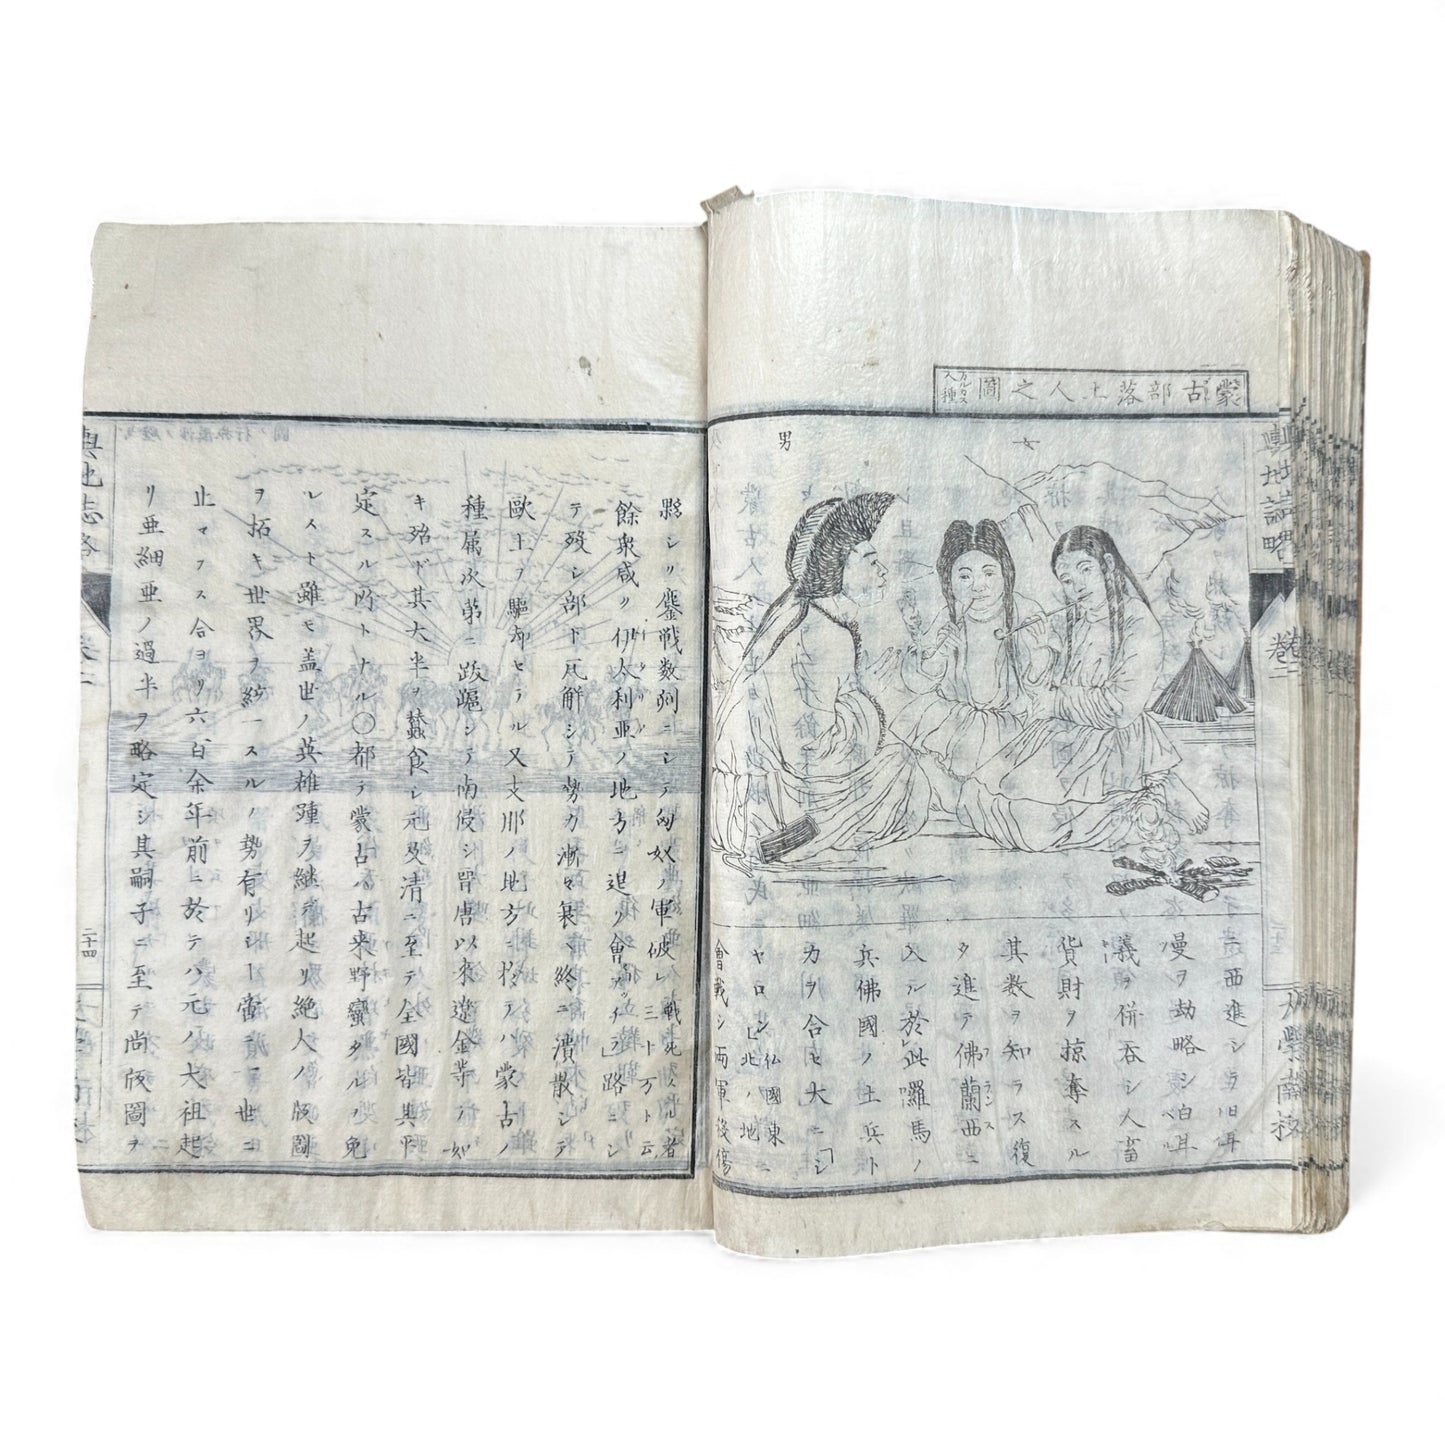 蒙古部落土人之圖 カルカス人種
女
男
ニ西進シラ旧耳
曼ヲ劫略シ白耳
義ヲ併呑シ人畜
貨財ヲ掠奪スル
其數ヲ知ラス復
タ進テ佛蘭西ニ
入ル於此囉馬ノ
兵佛國ノ土兵ト
力ヲ合セ大ニ「シ
ャロン」仏國東北ノ地ニ
會戰シ両軍後傷
輿地誌略
巻二
縣シリ鏖戰数剋ニシテ匈奴ノ軍破レ戰死スル者三十万ト云
餘衆咸ク伊太利亜ノ地方ニ退ク會「アッチラ」路ニシ
テ殁シ部下瓦解シテ勢力漸々衰ヘ終ニ潰散シテ
歐土ヲ驅却セラル又支那ノ地方ニ於テハ蒙古ノ
種属次第ニ跋踄シテ南侵シ晋唐以來遼金等ノ如
キ殆ド其大半ヲ蠶食シ元及清ニ至テ全國皆其平
定スル所トナル〇都テ蒙古ハ古来野蠻タルヲ免
レスト雖モ蓋世ノ英雄踵ヲ継テ起リ絶大ノ版圖
ヲ拓キ世界ヲ統一スルノ勢有リシ﹁當ニ一世ニ
止マラス今ヨリ六百余年前ニ於テハ元ノ大祖起
リ亜細亜ノ過半ヲ略定シ其嗣子ニ至テ尚版圖ヲ
輿地志略
巻二
二十四